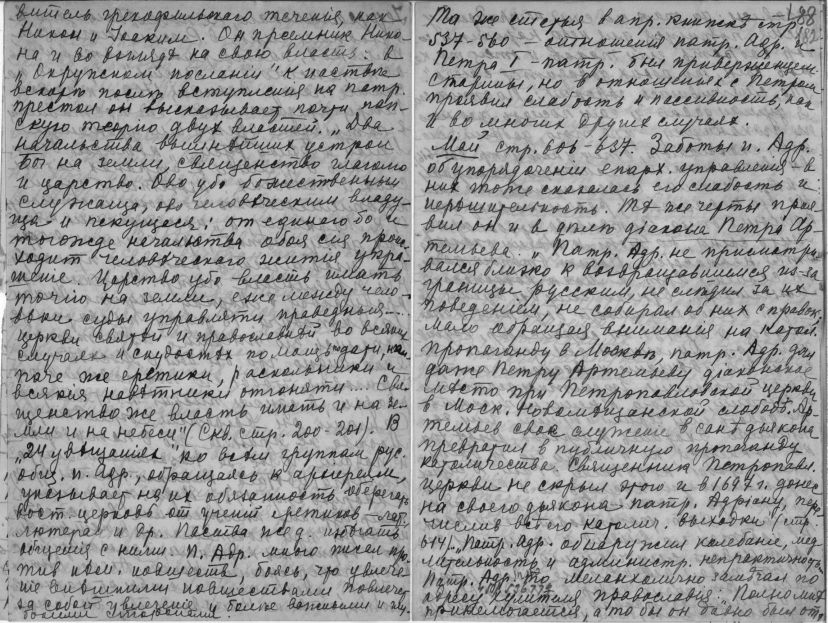 витель грекофильского течения, как
Никон и Иоаким. Он преемник Нико-
на и во взгляде на свою власть: в
„Окружном послании" к пастве
вскоре после вступления на патр.
престол он высказывает почти пап-
скую теорию двух властей. „Два
начальства вышнейших устрои
Бог на земли, священство глаголю
и царство. Ово убо божественным
служаща, ово человеческим владу-
ща и пекущася; от единаго бо и
тогожде начальства обоя сия проис-
ходит человеческого жития украш-
ение. Царство убо власть имать
точию на земли, еже между чело-
веки суды управляти праведныя...
церкви святой и православной во всяких
случаях и скудостях помощь дати, наи-
паче же еретики, раскольники и
всякия наветники отгоняти... Свя-
щенство же власть имать и на зе-
мли и на небеси" (Скв. стр. 200-201). В
„24 увещаниях" ко всем группам рус.
общ. п. Адр., обращаясь к архиереям,
указывает на их обязанность оберегать
вост. церковь от учений еретиков - лат.
лютеран и др. Паства же д. избегать
общения с ними. П. Адр. много писал про-
тив нем. новшеств, боясь, что увлече-
ние внешними новшествами повлечет
за собой увлечение и более важными и глу-
бокими сторонами.
188
182
Та же статья в апр. книжке стр.
537-560 - отношения патр. Адр. и
Петра I - патр. был приверженцем
старины, но в отношениях с Петром
проявил слабость и пассивность, как
и во многих других случаях.
Май стр. 606-637. Заботы п. Адр.
об упорядочении епарх. управления - в
них тоже сказалась его слабость и
нерешительность. Те же черты проя-
вил он и в деле диакона Петра Ар-
темьева. „Патр. Адр. не присматри-
вался близко к возвращавшимся из-за
границы русским, не следил за их
поведением, не собирал об них справок.
Мало обращая внимания на катол.
пропаганду в Москве, патр. Адр. дал
даже Петру Артемьеву диаконское
место при Петропавловской церкви
в Моск. Новомещанской слободе. Ар-
темьев свое служение в сане дьякона
превратил в публичную пропаганду
католичества. Священник Петропавл.
церкви не скрыл этого и в 1697 г. донес
на своего дьякона патр. Адриану, пере-
числив все его католич. выходки (стр.
614). „Патр. Адр. обнаружил колебание, мед-
лительность и администр. непрактичность.
Патр. Адр. то меланхолично замечал по
адресу хулителя православия: „Полно мне
, а то бы он давно был от-